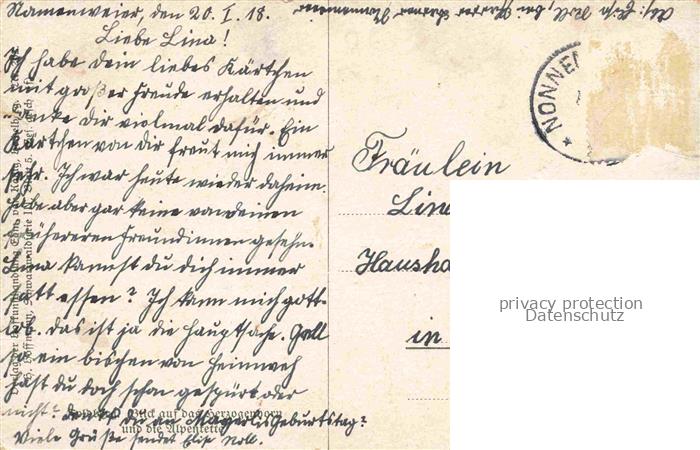 Nonnenweier, den 20. I. 18.
Liebe Lina!
Ich habe dein liebes Kärtchen
mit großer Freude erhalten und
danke dir vielmal dafür. Ein
Kärtchen von dir freut mich immer
sehr. Ich war heute wieder daheim.
Habe aber gar keine von deinen
früheren Freundinnen gesehn.
Lina kannst du dich immer
satt essen? Ich kann mich gott-
lob. das ist ja die Hauptsache. Gell
so ein bischen von Heimweh
hast du doch schon gespürt oder
nicht? denkst du an Mayerlis Geburtstag?
Viele Grüße sendet Elise Noll.
Blick auf das Herzogenhorn
und die Alpenkette
NONNEN
Fräulein
Lina
Hausha
in
privacy protection
Datenschutz